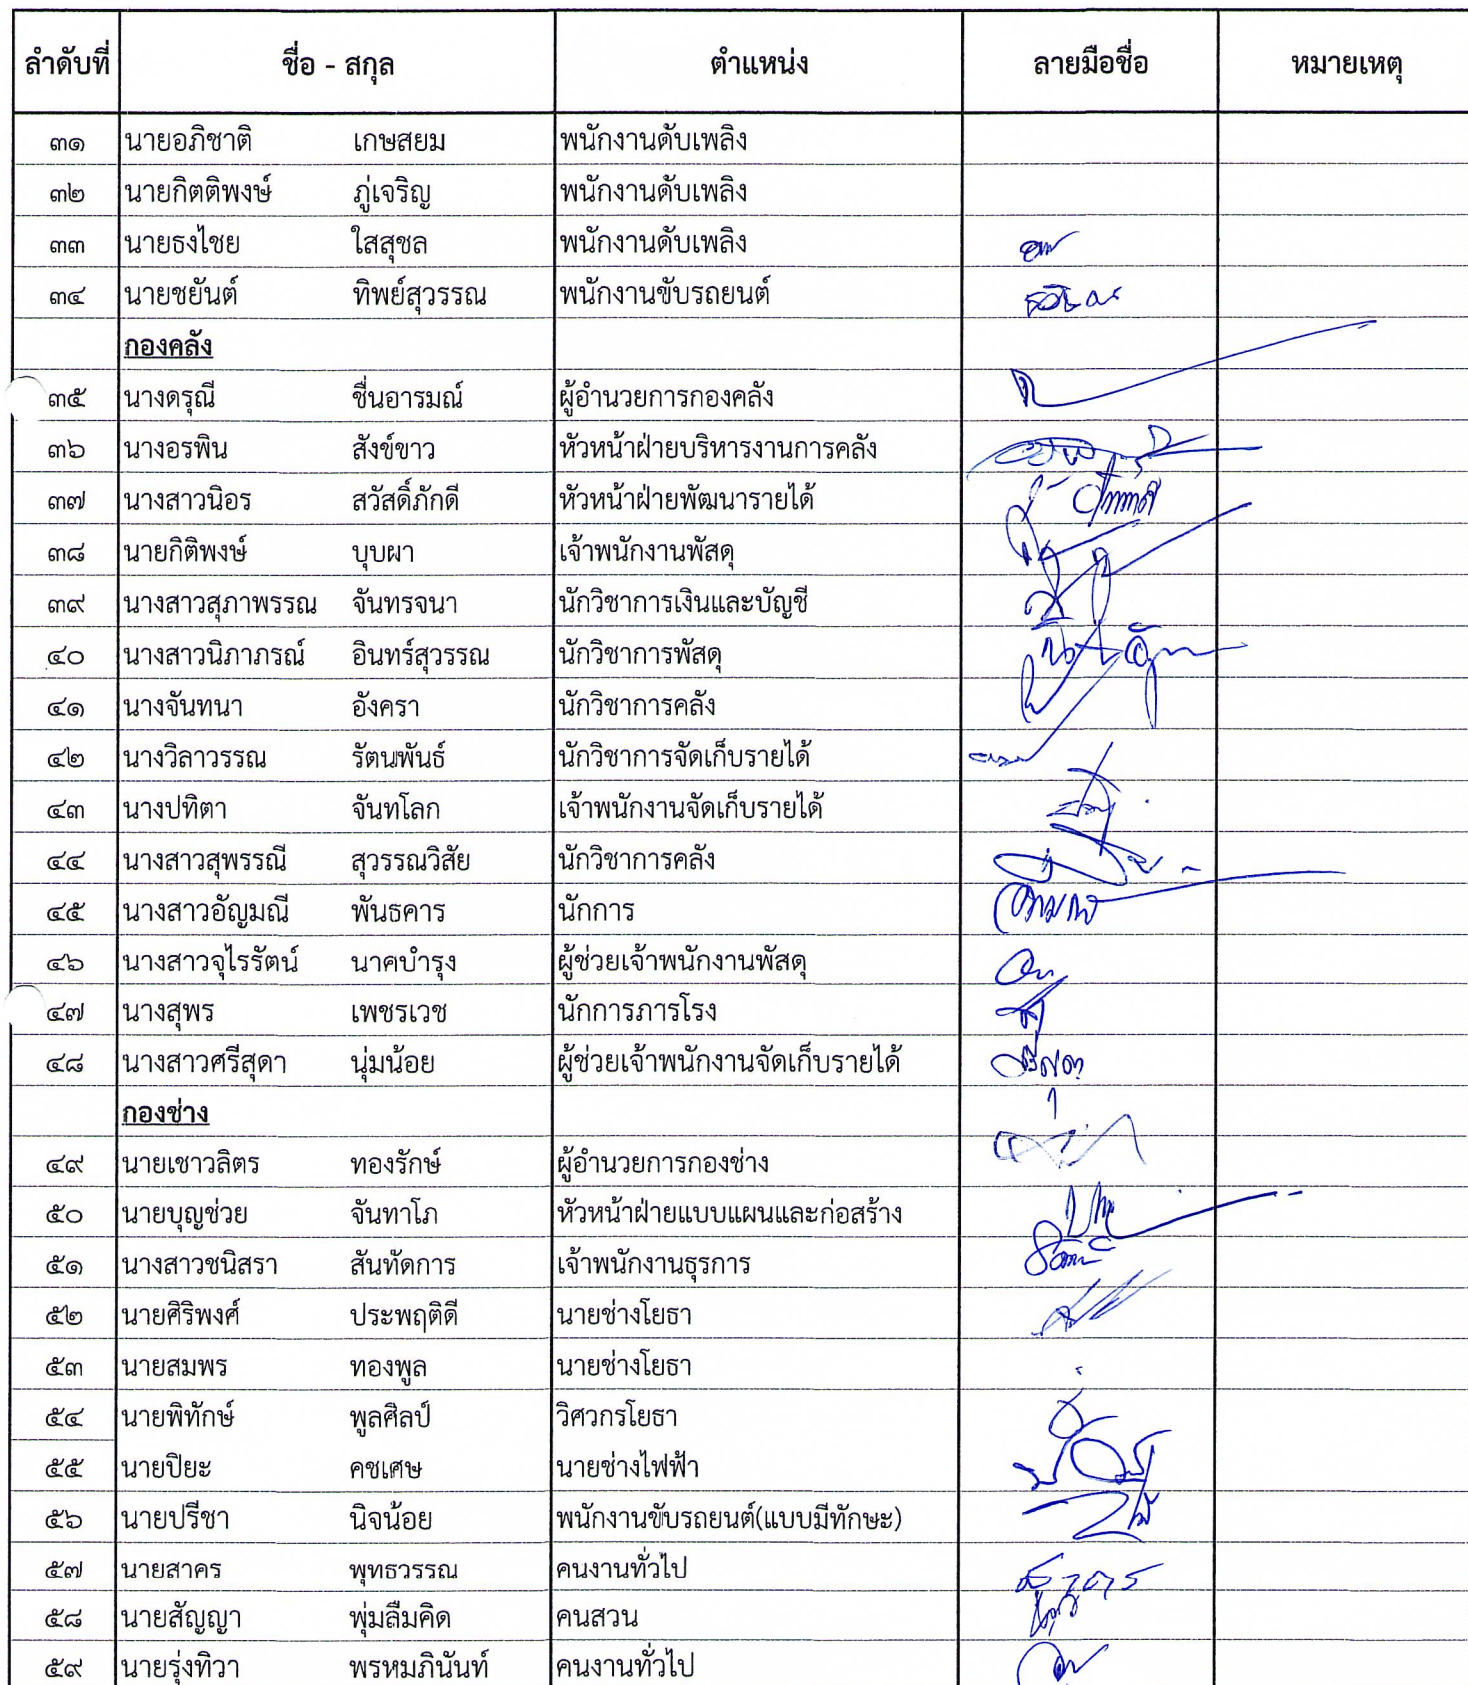 ลำดับที่ ชื่อ - สกุล ตำแหน่ง ลายมือชื่อ หมายเหตุ
๓๑ นายอภิชาติ เกษสยม พนักงานดับเพลิง
๓๒ นายกิตติพงษ์ ภู่เจริญ พนักงานดับเพลิง
๓๓ นายธงไชย ใสสุชล พนักงานดับเพลิง
๓๔ นายชยันต์ ทิพย์สุวรรณ พนักงานขับรถยนต์
กองคลัง
๓๕ นางดรุณี ชื่นอารมณ์ ผู้อำนวยการกองคลัง
๓๖ นางอรพิน สังข์ขาว หัวหน้าฝ่ายบริหารงานการคลัง
๓๗ นางสาวนิอร สวัสดิ์ภักดี หัวหน้าฝ่ายพัฒนารายได้
๓๘ นายกิติพงษ์ บุบผา เจ้าพนักงานพัสดุ
๓๙ นางสาวสุภาพรรณ จันทรจนา นักวิชาการเงินและบัญชี
๔๐ นางสาวนิภาภรณ์ อินทร์สุวรรณ นักวิชาการพัสดุ
๔๑ นางจันทนา อังครา นักวิชาการคลัง
๔๒ นางวิลาวรรณ รัตนพันธ์ นักวิชาการจัดเก็บรายได้
๔๓ นางปทิตา จันทโลก เจ้าพนักงานจัดเก็บรายได้
๔๔ นางสาวสุพรรณี สุวรรณวิสัย นักวิชาการคลัง
๔๕ นางสาวอัญมณี พันธคาร นักการ
๔๖ นางสาวจุไรรัตน์ นาคบำรุง ผู้ช่วยเจ้าพนักงานพัสดุ
๔๗ นางสุพร เพชรเวช นักการภารโรง
๔๘ นางสาวศรีสุดา นุ่มน้อย ผู้ช่วยเจ้าพนักงานจัดเก็บรายได้
กองช่าง
๔๙ นายเชาวลิตร ทองรักษ์ ผู้อำนวยการกองช่าง
๕๐ นายบุญช่วย จันทาโภ หัวหน้าฝ่ายแบบแผนและก่อสร้าง
๕๑ นางสาวชนิสรา สันทัดการ เจ้าพนักงานธุรการ
๕๒ นายศิริพงศ์ ประพฤติดี นายช่างโยธา
๕๓ นายสมพร ทองพูล นายช่างโยธา
๕๔ นายพิทักษ์ พูลศิลป์ วิศวกรโยธา
๕๕ นายปิยะ คชเศษ นายช่างไฟฟ้า
๕๖ นายปรีชา นิจน้อย พนักงานขับรถยนต์(แบบมีทักษะ)
๕๗ นายสาคร พุทธวรรณ คนงานทั่วไป
๕๘ นายสัญญา พุ่มลืมคิด คนสวน
๕๙ นายรุ่งทิวา พรหมภินันท์ คนงานทั่วไป